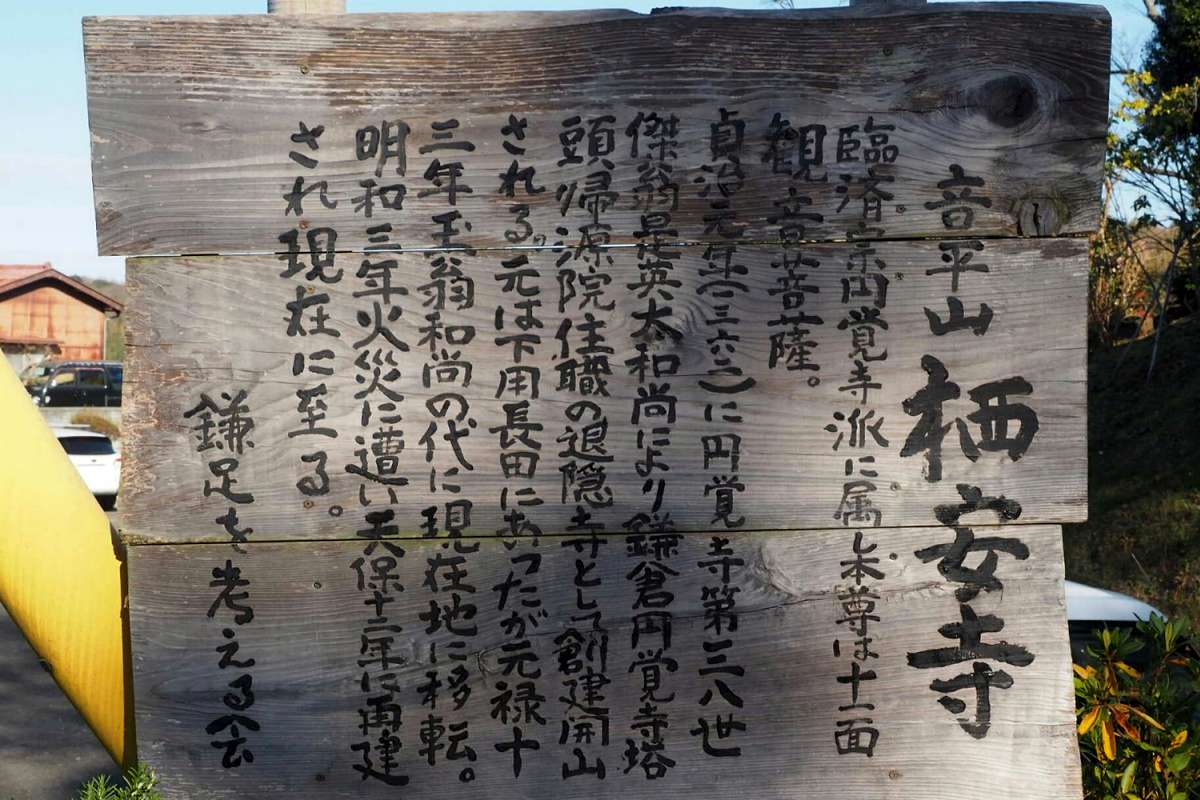 音平山 栖安寺
臨済宗円覚寺派に属し本尊は十一面
観音菩薩。
貞治元年(一三六二)に円覚寺第三八世
傑翁是英大和尚により鎌倉円覚寺塔
頭帰源院住職の退隠寺として創建開山
される。元は下用長田にあったが元禄十
三年玉翁和尚の代に現在地に移転。
明和三年火災に遭い天保十二年に再建
され現在に至る。
鎌足を考える会